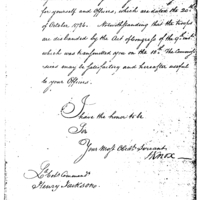 for yourself and Officers, which are dated the 20th
of October 1786. Notwithstanding that the troops
are disbanded by the Act of Congress of the 9th inst
which was transmitted you on the 10th. The Commiss
ions may be satisfactory and hereafter useful
to your Officers.
I have the honor to be
Sir
Your Most Obedt Servant
HKnox
Lt Col Commandt
Henry Jackson